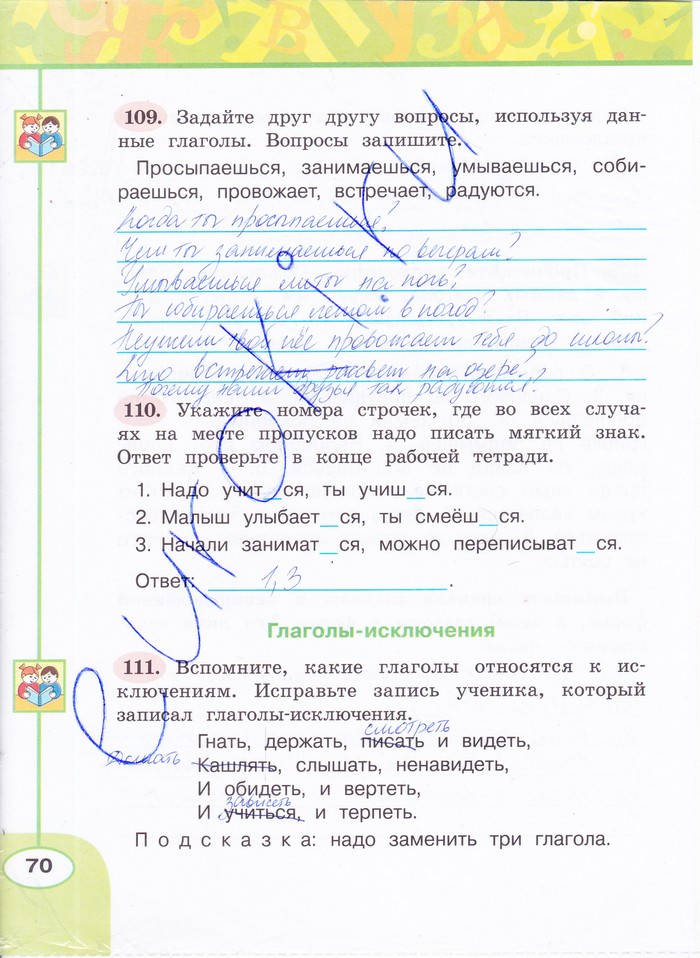 109. Задайте друг другу вопросы, используя дан-
ные глаголы. Вопросы запишите.
Просыпаешься, занимаешься, умываешься, соби-
раешься, провожает, встречает, радуются.
Когда ты просыпаешься?
Чем ты занимаешься по вечерам?
Умываешься ли ты на ночь?
Ты собираешься летом в поход?
Неужели твой пёс провожает тебя до школы?
Кто встречает рассвет на озере?
Почему наши друзья так радуются?
110. Укажите номера строчек, где во всех случа-
ях на месте пропусков надо писать мягкий знак.
Ответ проверьте в конце рабочей тетради.
1. Надо учит_ся, ты учиш_ся.
2. Малыш улыбает_ся, ты смеёш_ся.
3. Начали занимат_ся, можно переписыват_ся.
Ответ: 1,3.
Глаголы-исключения
111. Вспомните, какие глаголы относятся к ис-
ключениям. Исправьте запись ученика, который
записал глаголы-исключения.
смотреть
Гнать, держать, писать и видеть,
Дышать Кашлять, слышать, ненавидеть,
И обидеть, и вертеть,
зависеть
И учиться, и терпеть.
Подсказка: надо заменить три глагола.
70
еуроки